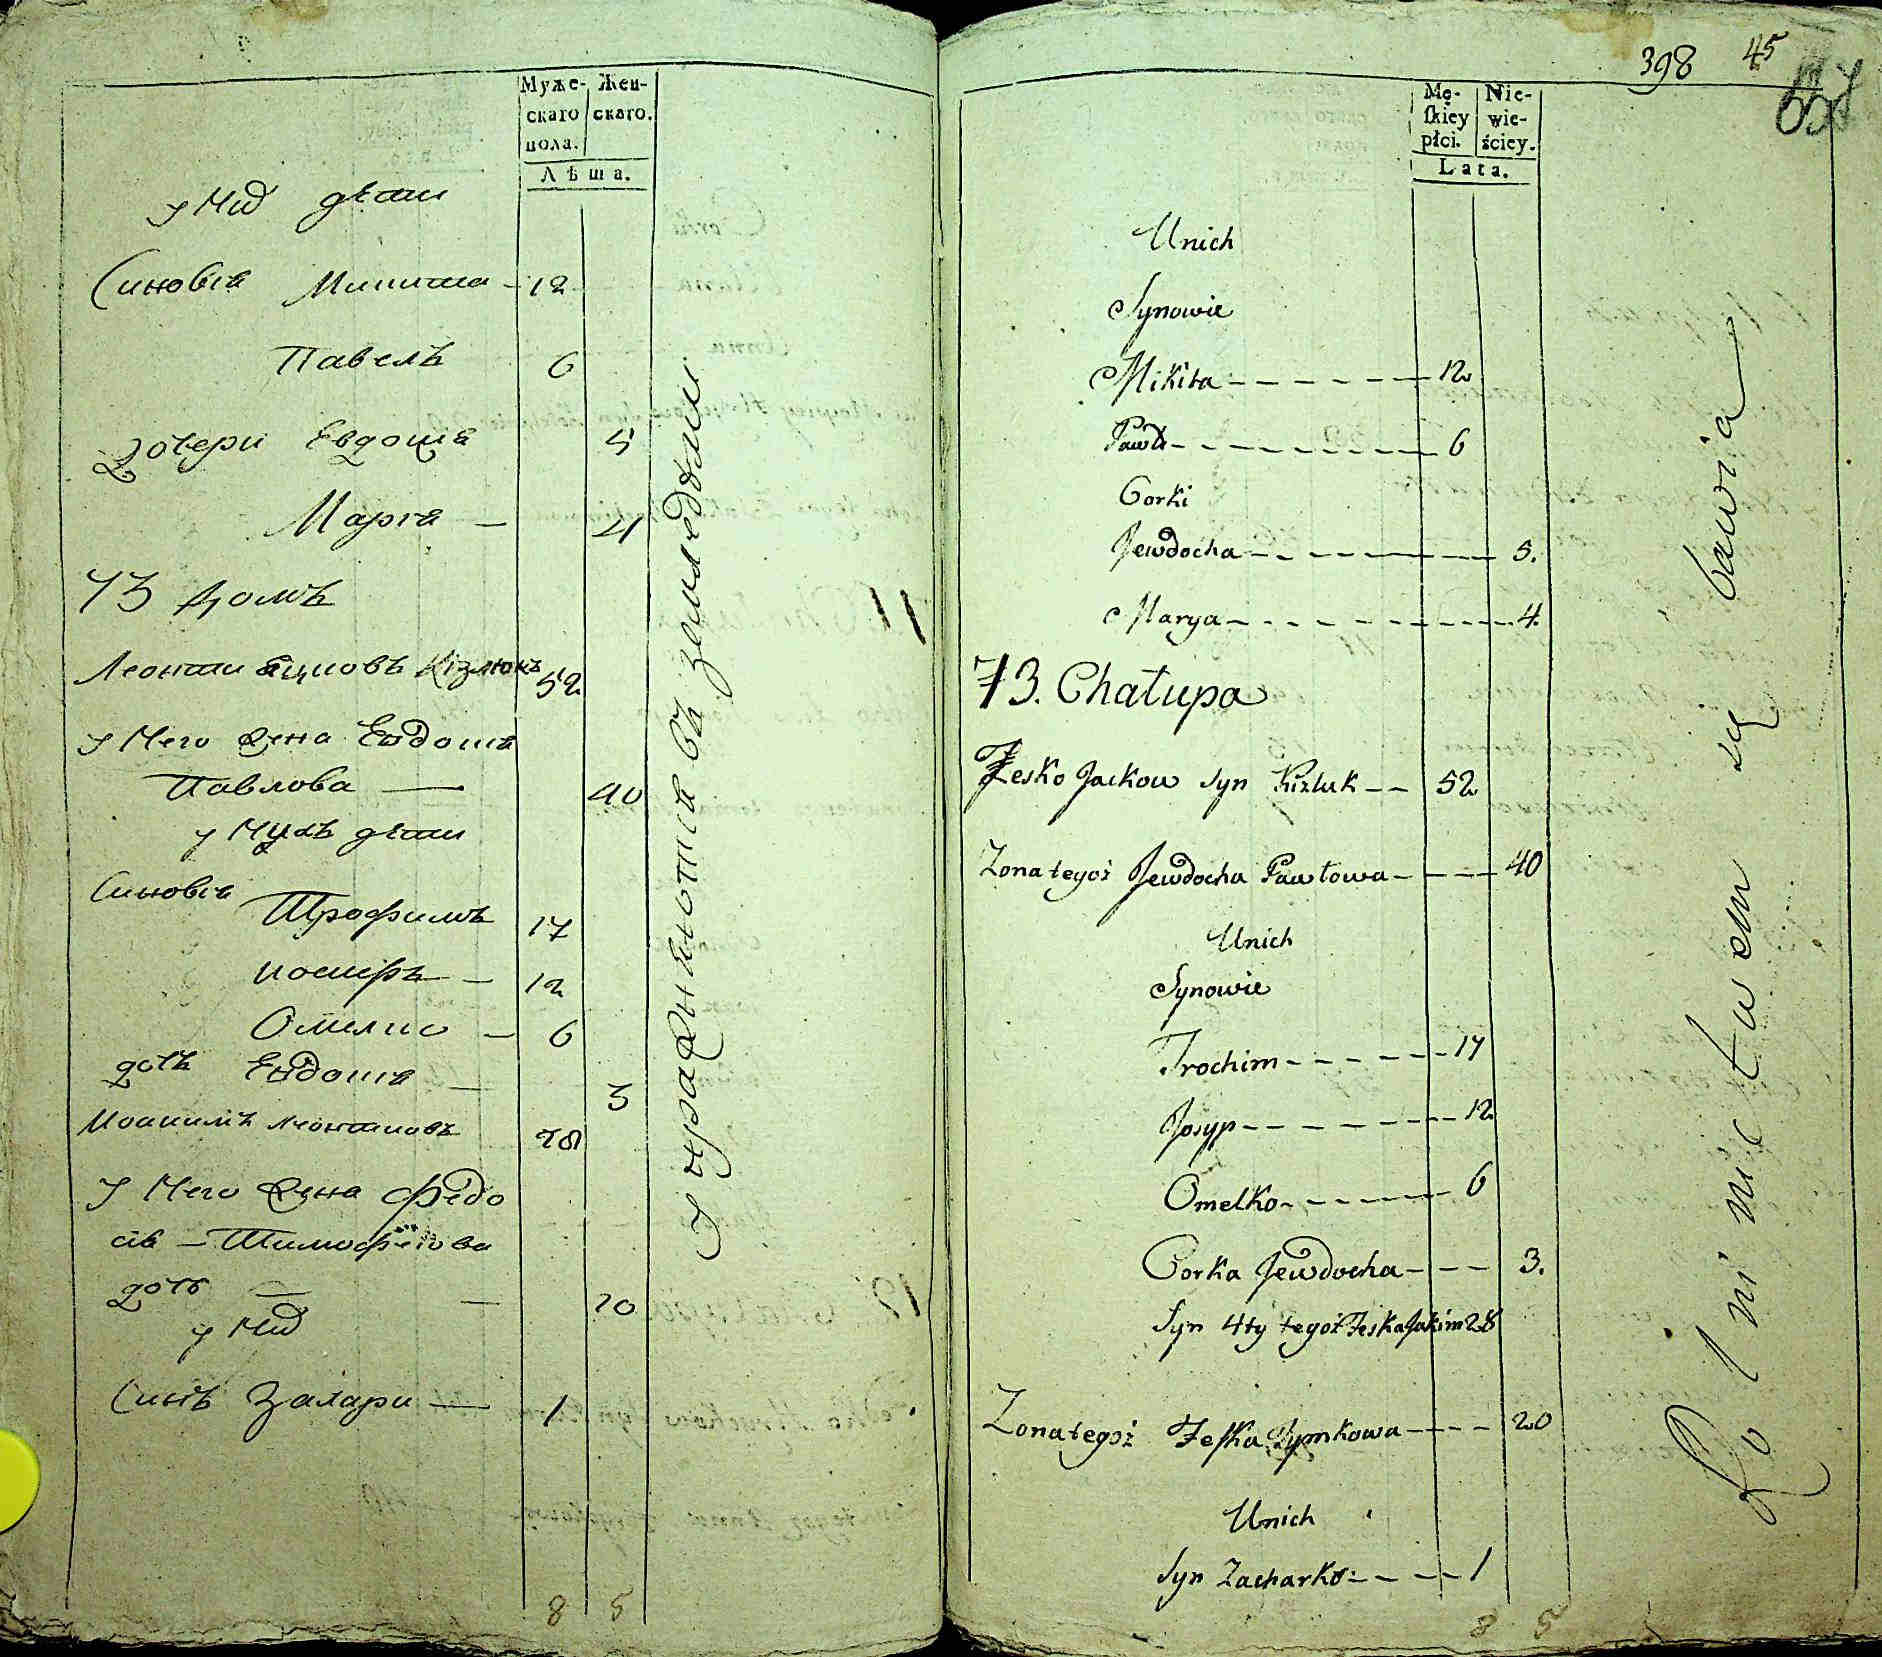 Муже-
скаго
пола.
Жен-
скаго.
Лѣта.
у Них дети
Синовіа Микита - 12
Павелъ 6
Дочери Евдоша 5
Марія - 4
73 домъ
Леонти Яцковъ Кізлюкъ 52
у Него Жена Евдоша
Павлова — 40
у Нихъ дети
Синовіа
Трофимъ 17
иосифъ - 12
Омелко - 6
дочъ Евдоша - 3
Иоакимъ Леонтиовъ 28
у Него Жена Федо
сіа - Тимофеіова
дочъ - - 20
у Них
Синъ Захари — 1
8 5
упражняютца въ земледелии
398 45
Mę-
skiey
płci.
Nie-
wie-
ściey.
Lata.
Unich
Synowie
Mikita - - - - - - 12
Paweł - - - - - - 6
Corki
Jewdocha - - - - - - 5.
Marya - - - - - - 4.
73. Chałupa
Lesko Jackow syn Kizluk - - 52
Zona tegoż Jewdocha Pawłowa - - - - 40
Unich
Synowie
Trochim - - - - - - 17
Josyp - - - - - - 12
Omelko - - - - - - 6
Corka Jewdocha - - - - 3.
Syn 4ty tegoż Leska Jakim 28
Zona tegoż Feśka Tymkowa - - - - 20
Unich
Syn Zacharko - - - - 1
8 5
Rolnictwem się bawia